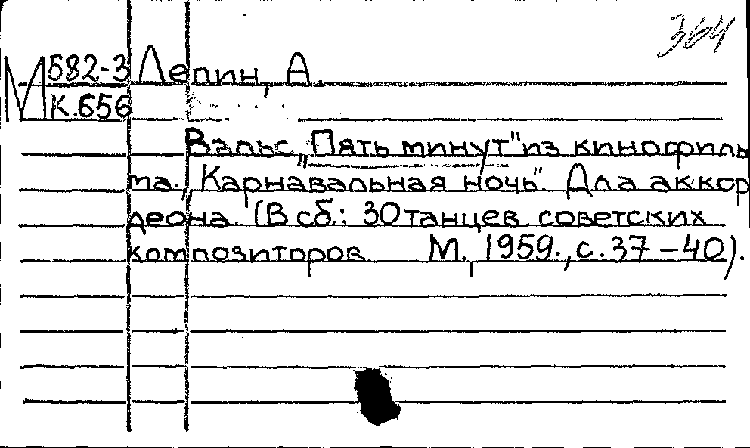 364
М 582-3 Лепин, А.
К.656
Вальс „Пять минут" из кинофиль
ма „Карнавальная ночь". Для аккор
деона. (В сб.: 30 танцев советских
композиторов М., 1959., с. 37-40).